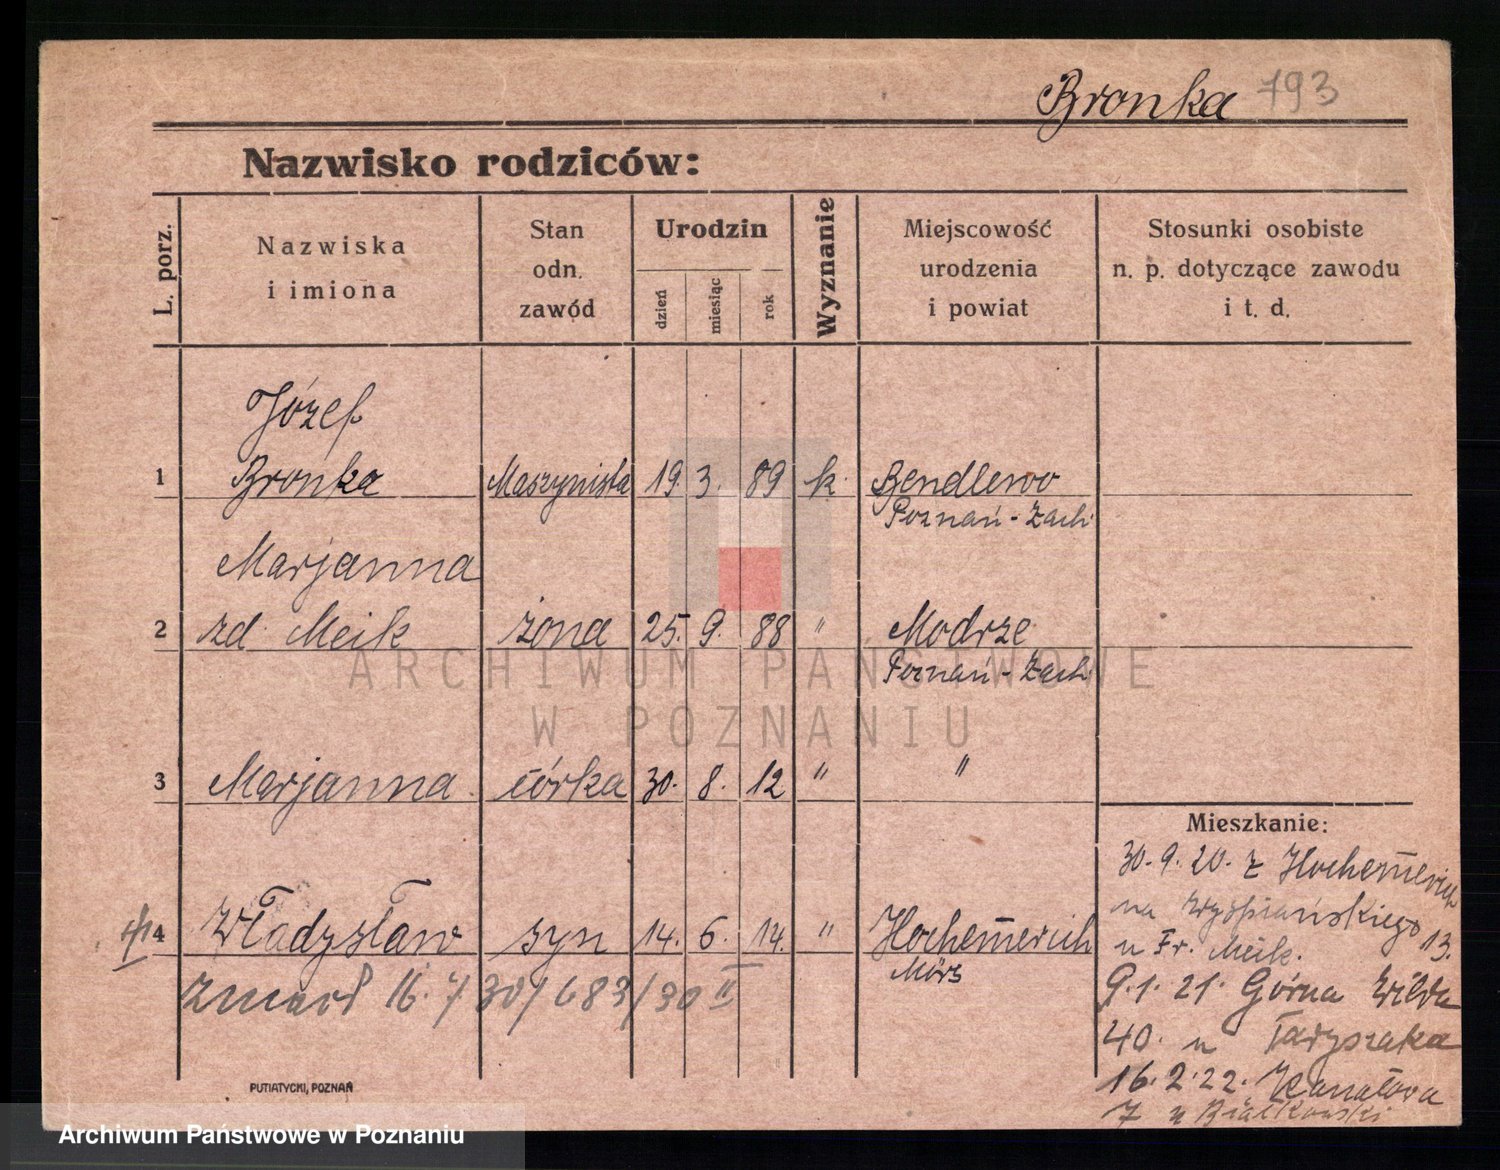 Bronka 793
Nazwisko rodziców:
L. porz.
Nazwiska
i imiona
Stan
odn.
zawód
Urodzin
dzień
miesiąc
rok
Wyznanie
Miejscowość
urodzenia
i powiat
Stosunki osobiste
n. p. dotyczące zawodu
i t. d.
Józef
1 Bronka Maszynista 19. 3. 89 k. Bendlewo
Poznań-Zach.
Marjanna
2 zd. Meik żona 25. 9. 88 " Modrze
Poznań-Zach
3 Marjanna córka 30. 8. 12 " "
4 Władysław syn 14. 6. 14. " Hochemmerich
Mörs
zmarł 16. 7 30/683/30 II
Mieszkanie:
30. 9. 20. z Hochemmerich
na Wyspiańskiego 13.
u Fr. Meik.
9. 1. 21. Górna Wilda
40. u Taryszaka
16. 2. 22. Kanałowa
7 u Białkowski
PUTIATYCKI, POZNAŃ
ARCHIWUM PAŃSTWOWE
W POZNANIU
Archiwum Państwowe w Poznaniu